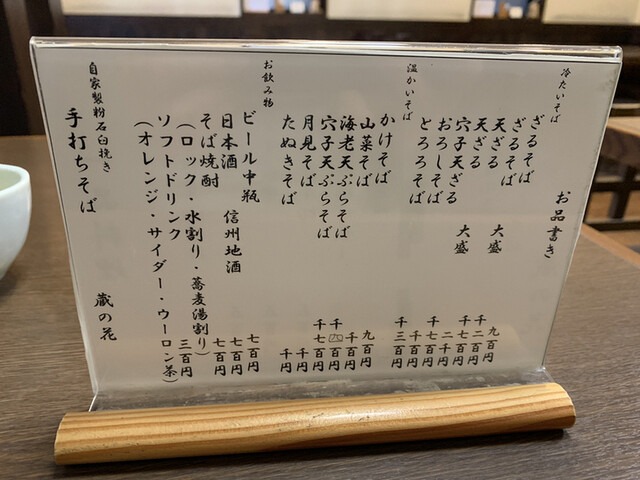 お品書き
冷たいそば
ざるそば 九百円
ざるそば 大盛 千二百円
天ざる 千七百円
天ざる 大盛 二千円
穴子天ざる 千七百円
おろしそば 千円
とろろそば 千三百円
温かいそば
かけそば 九百円
山菜そば 千百円
海老天ぷらそば 千九百円
穴子天ぷらそば 千七百円
月見そば 千円
たぬきそば 千円
お飲み物
ビール中瓶 七百円
日本酒 信州地酒 七百円
そば焼酎 七百円
(ロック・水割り・蕎麦湯割り)
ソフトドリンク 三百円
(オレンジ・サイダー・ウーロン茶)
自家製粉石臼挽き
手打ちそば 蔵の花